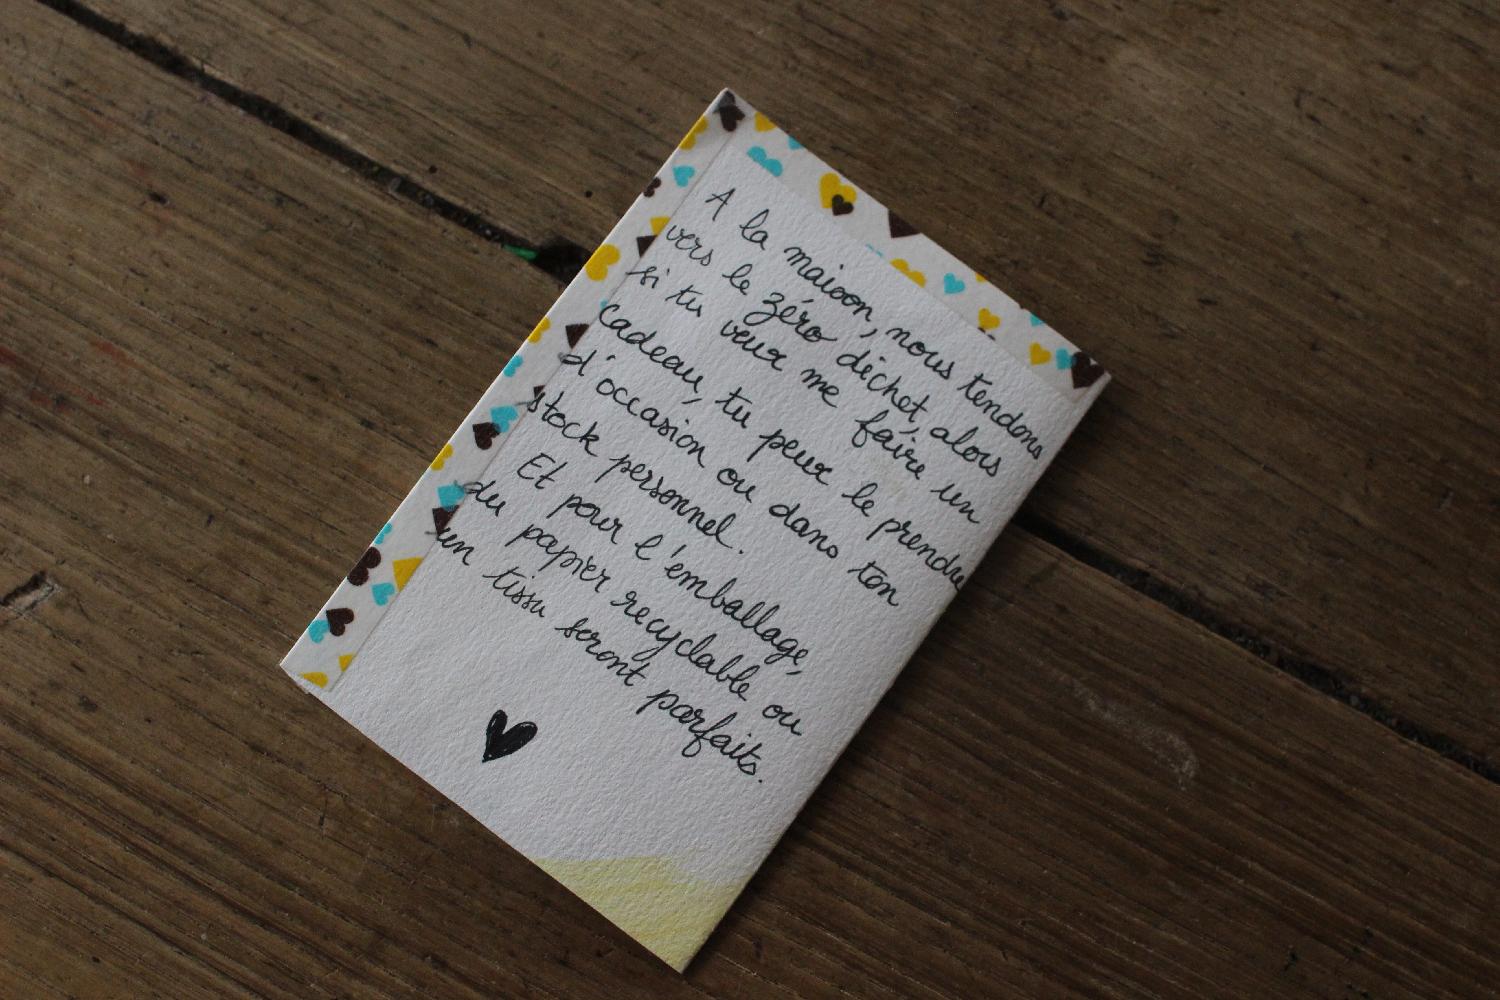 A la maison, nous tendons
vers le zéro déchet, alors
si tu veux me faire un
cadeau, tu peux le prendre
d'occasion ou dans ton
stock personnel.
Et pour l'emballage,
du papier recyclable ou
un tissu seront parfaits.